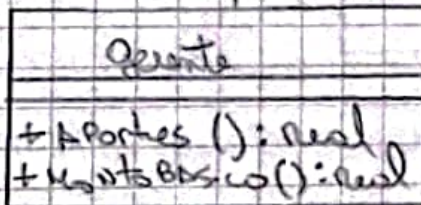 Gerente
+ Aportes () : real
+ MontoBásico() : real